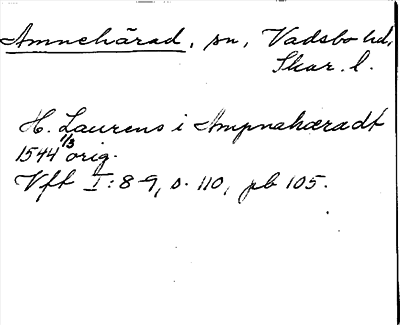 Amnehärad, sn, Vadsbo hd,
Skar. l.
H. Laurens i Ampnahæradt
1544 1/3 orig.
Vft I:8-9, s. 110, pb 105.